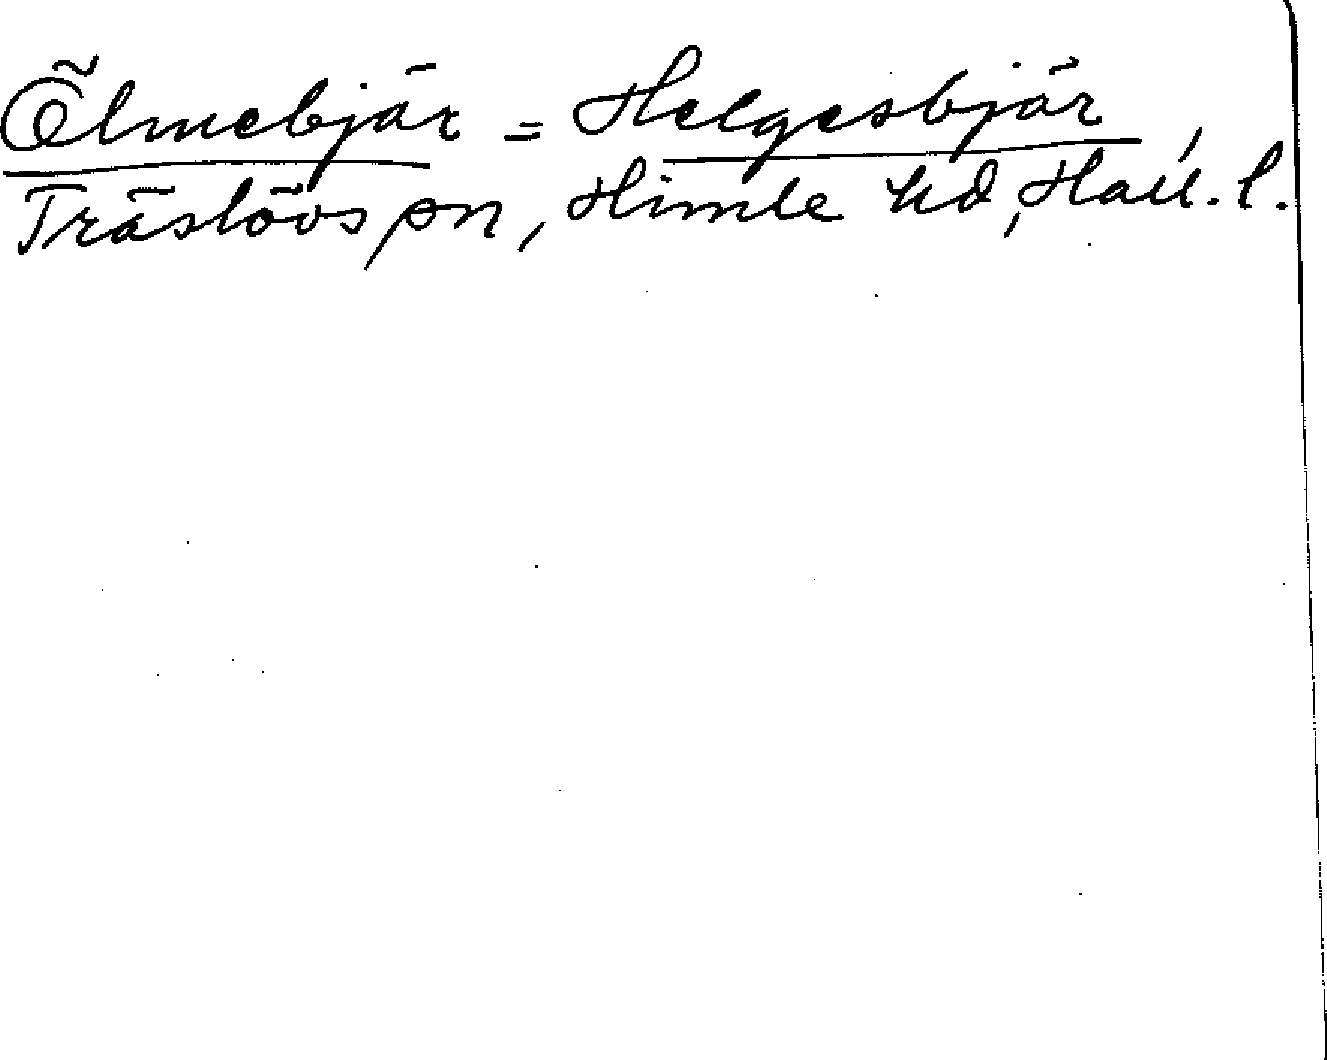 Ölmebjär = Helgesbjär,
Träslövs sn, Himle hd, Hall. l.